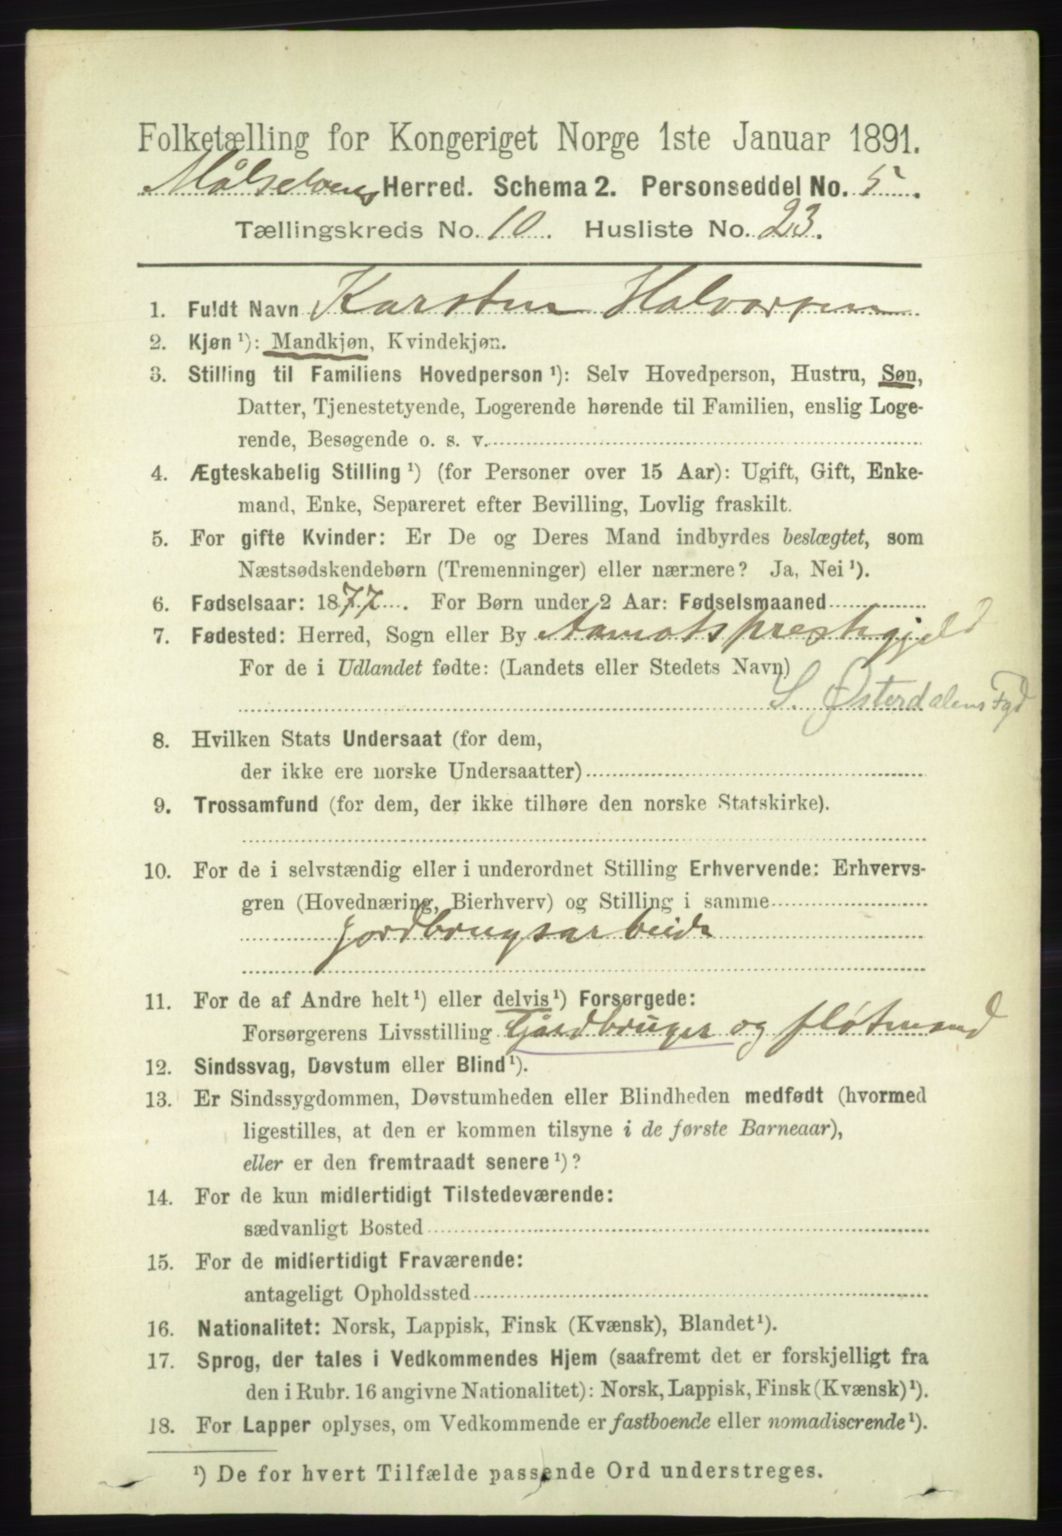 Folketælling for Kongeriget Norge 1ste Januar 1891.
Målselvens Herred. Schema 2. Personseddel No. 5.
Tællingskreds No. 10. Husliste No. 23.
1. Fuldt Navn Karsten Halvorsen
2. Kjøn ¹): Mandkjøn, Kvindekjøn.
3. Stilling til Familiens Hovedperson ¹): Selv Hovedperson, Hustru, Søn,
Datter, Tjenestetyende, Logerende hørende til Familien, enslig Loge-
rende, Besøgende o. s. v.
4. Ægteskabelig Stilling ¹) (for Personer over 15 Aar): Ugift, Gift, Enke-
mand, Enke, Separeret efter Bevilling, Lovlig fraskilt.
5. For gifte Kvinder: Er De og Deres Mand indbyrdes beslægtet, som
Næstsødskendebørn (Tremenninger) eller nærmere? Ja, Nei ¹).
6. Fødselsaar: 1877. For Børn under 2 Aar: Fødselsmaaned
7. Fødested: Herred, Sogn eller By Aamots prestegjeld
For de i Udlandet fødte: (Landets eller Stedets Navn)
S. Østerdalens Fgd
8. Hvilken Stats Undersaat (for dem,
der ikke ere norske Undersaatter)
9. Trossamfund (for dem, der ikke tilhøre den norske Statskirke).
10. For de i selvstændig eller i underordnet Stilling Erhvervende: Erhvervs-
gren (Hovednæring, Bierhverv) og Stilling i samme
jordbrugsarbeide
11. For de af Andre helt ¹) eller delvis ¹) Forsørgede:
Forsørgerens Livsstilling Gårdbruger og fløtmand
12. Sindssvag, Døvstum eller Blind ¹).
13. Er Sindssygdommen, Døvstumheden eller Blindheden medfødt (hvormed
ligestilles, at den er kommen tilsyne i de første Barneaar),
eller er den fremtraadt senere ¹)?
14. For de kun midlertidigt Tilstedeværende:
sædvanligt Bosted
15. For de midlertidigt Fraværende:
antageligt Opholdssted
16. Nationalitet: Norsk, Lappisk, Finsk (Kvænsk), Blandet ¹).
17. Sprog, der tales i Vedkommendes Hjem (saafremt det er forskjelligt fra
den i Rubr. 16 angivne Nationalitet): Norsk, Lappisk, Finsk (Kvænsk) ¹).
18. For Lapper oplyses, om Vedkommende er fastboende eller nomadiserende ¹).
¹) De for hvert Tilfælde passende Ord understreges.